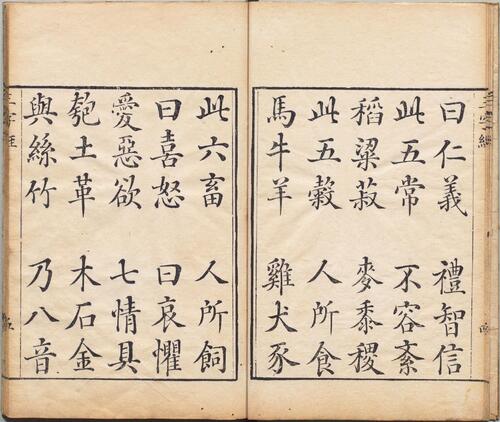 三字經
曰仁義 禮智信
此五常 不容紊
稻粱菽 麥黍稷
此五穀 人所食
馬牛羊 雞犬豕
此六畜 人所飼
曰喜怒 曰哀懼
愛惡欲 七情具
匏土革 木石金
與絲竹 乃八音
三字經